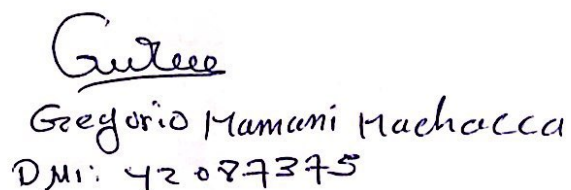 Gregorio Mamani Machacca
DNI: 42087375